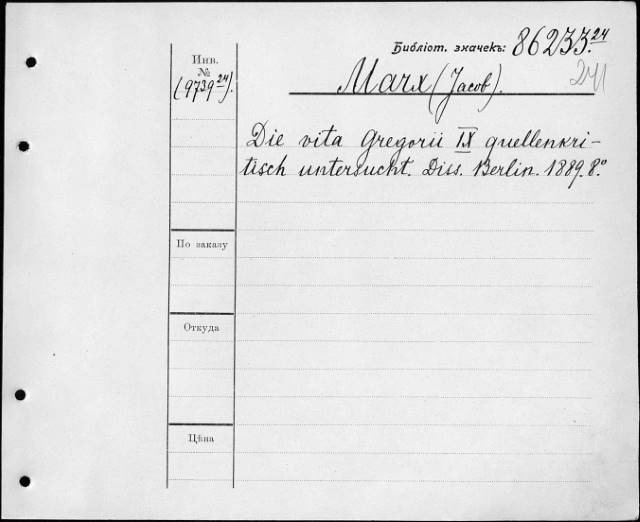 Библіот. значекъ: 86233.24
241
Инв.
№
(9739 24).
Marx (Jacob).
Die vita Gregorii IX quellenkri-
tisch untersucht. Diss. Berlin. 1889. 8.º
По заказу
Откуда
Цѣна